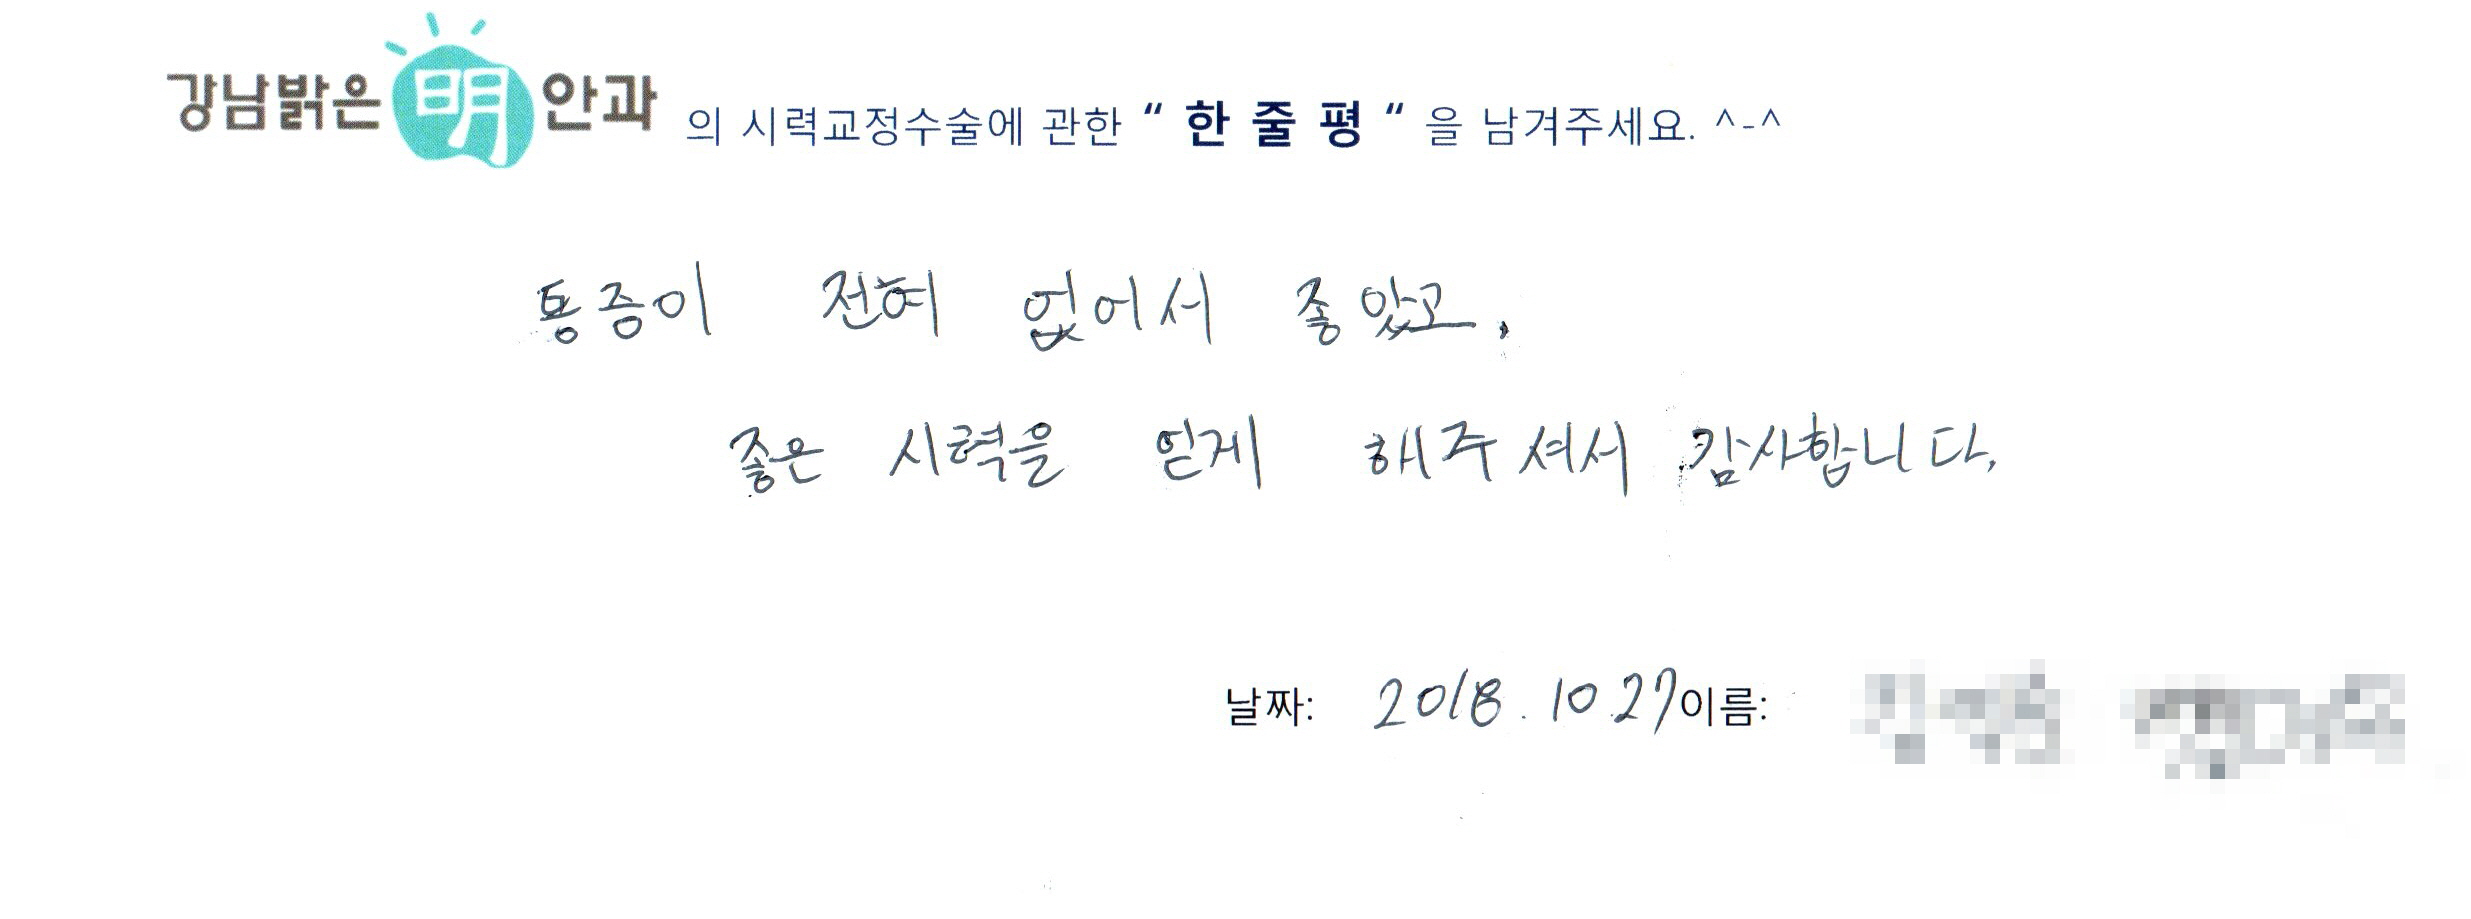 강남밝은明안과 의 시력교정수술에 관한 “ 한 줄 평 “ 을 남겨주세요. ^-^
통증이 전혀 없어서 좋았고,
좋은 시력을 얻게 해주셔서 감사합니다.
날짜: 2018. 10. 27 이름: